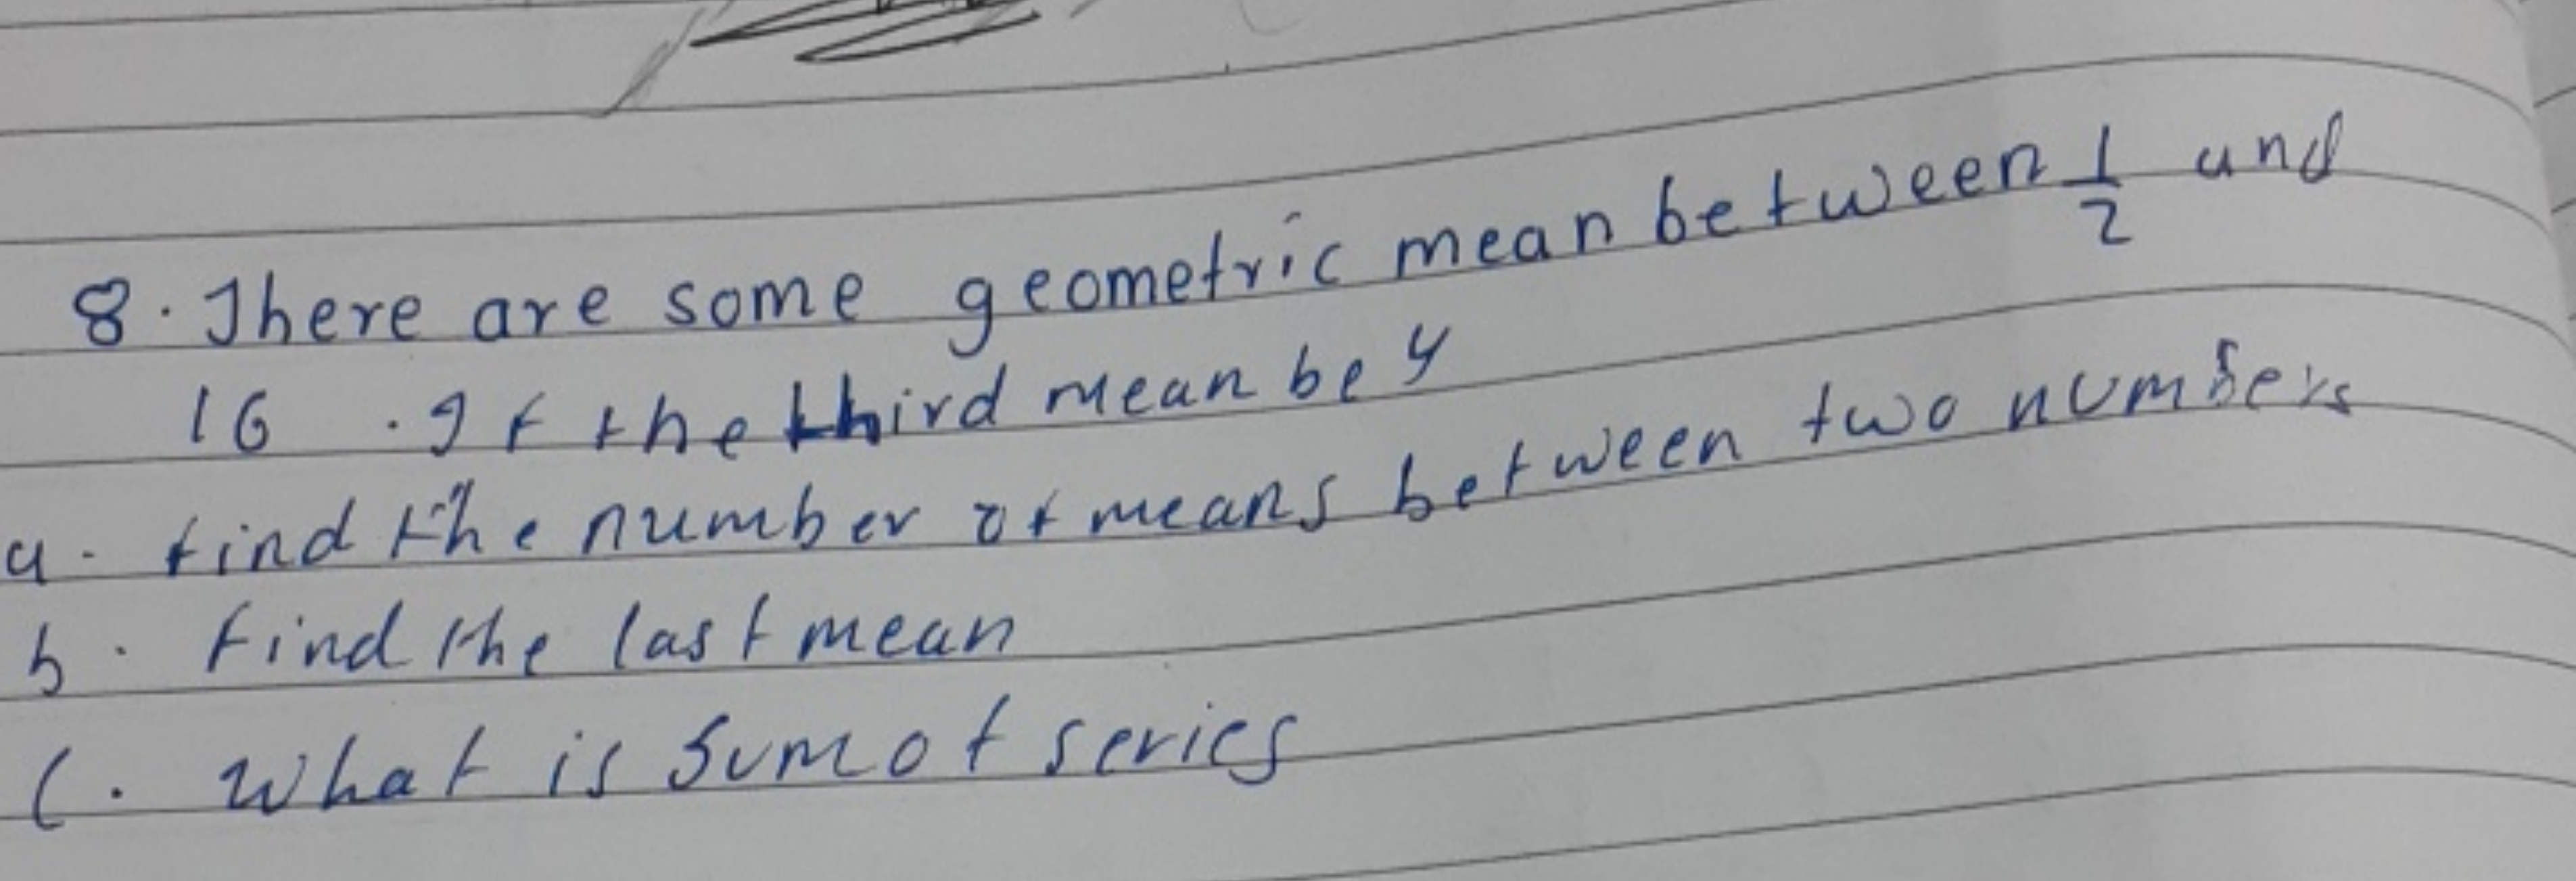 8. There are some geometric mean between 1/2 and
16 . If the third mean be 4
a. find the number of means between two numbers
b. Find the last mean
c. What is sum of series